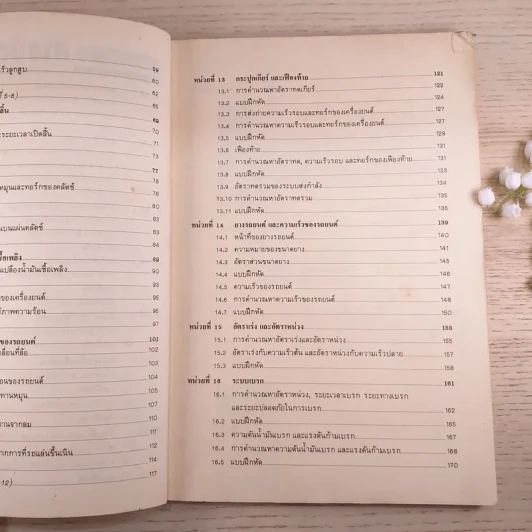 ร้วลูกสูบ 59
60
62
ที่ 5-8) 65
ลิ้น 69
70
ระยะเวลาเปิดลิ้น 71
73
77
หมุนและทอร์กของคลัตช์ 78
82
แบนแผ่นคลัตช์ 83
84
ชื้อเพลิง 89
เปลืองน้ำมันเชื้อเพลิง 89
95
ของเครื่องยนต์ 95
ธิภาพความร้อน 95
97
ของรถยนต์ 101
คลื่อนที่ล้อ 102
104
อนของรถยนต์ 104
ทานหมุน 106
110
านจากลม 110
111
ากการที่รถแล่นขึ้นเนิน 112
114
-12) 117
หน่วยที่ 13 กระปุกเกียร์ และเฟืองท้าย 121
13.1 การคำนวณหาอัตราทดเกียร์ 122
13.2 แบบฝึกหัด 123
13.3 การส่งถ่ายความเร็วรอบและทอร์กของเครื่องยนต์ 124
13.4 การคำนวณหาความเร็วรอบและทอร์กของเครื่องยนต์ 127
13.5 แบบฝึกหัด 129
13.6 เฟืองท้าย 130
13.7 การคำนวณหาอัตราทด, ความเร็วรอบ และทอร์กของเฟืองท้าย 131
13.8 แบบฝึกหัด 133
13.9 อัตราทดรวมของระบบส่งกำลัง 134
13.10 การคำนวณหาอัตราทดรวม 135
13.11 แบบฝึกหัด 136
หน่วยที่ 14 ยางรถยนต์ และความเร็วของรถยนต์ 139
14.1 หน้าที่ของยางรถยนต์ 140
14.2 ความหมายของขนาดยาง 140
14.3 อัตราส่วนขนาดยาง 142
14.4 แบบฝึกหัด 146
14.5 ความเร็วของรถยนต์ 147
14.6 การคำนวณหาความเร็วของรถยนต์ 148
14.7 แบบฝึกหัด 150
หน่วยที่ 15 อัตราเร่ง และอัตราหน่วง 153
15.1 การคำนวณหาอัตราเร่งและอัตราหน่วง 155
15.2 อัตราเร่งกับความเร็วต้น และอัตราหน่วงกับความเร็วปลาย 156
15.3 แบบฝึกหัด 158
หน่วยที่ 16 ระบบเบรก 161
16.1 การคำนวณหาอัตราหน่วง, ระยะเวลาเบรก ระยะทางเบรก
และระยะปลอดภัยในการเบรก 162
16.2 แบบฝึกหัด 165
16.3 ความดันน้ำมันเบรก และแรงดันก้ามเบรก 166
16.4 การคำนวณหาความดันน้ำมันเบรก และแรงดันก้ามเบรก 168
16.5 แบบฝึกหัด 170